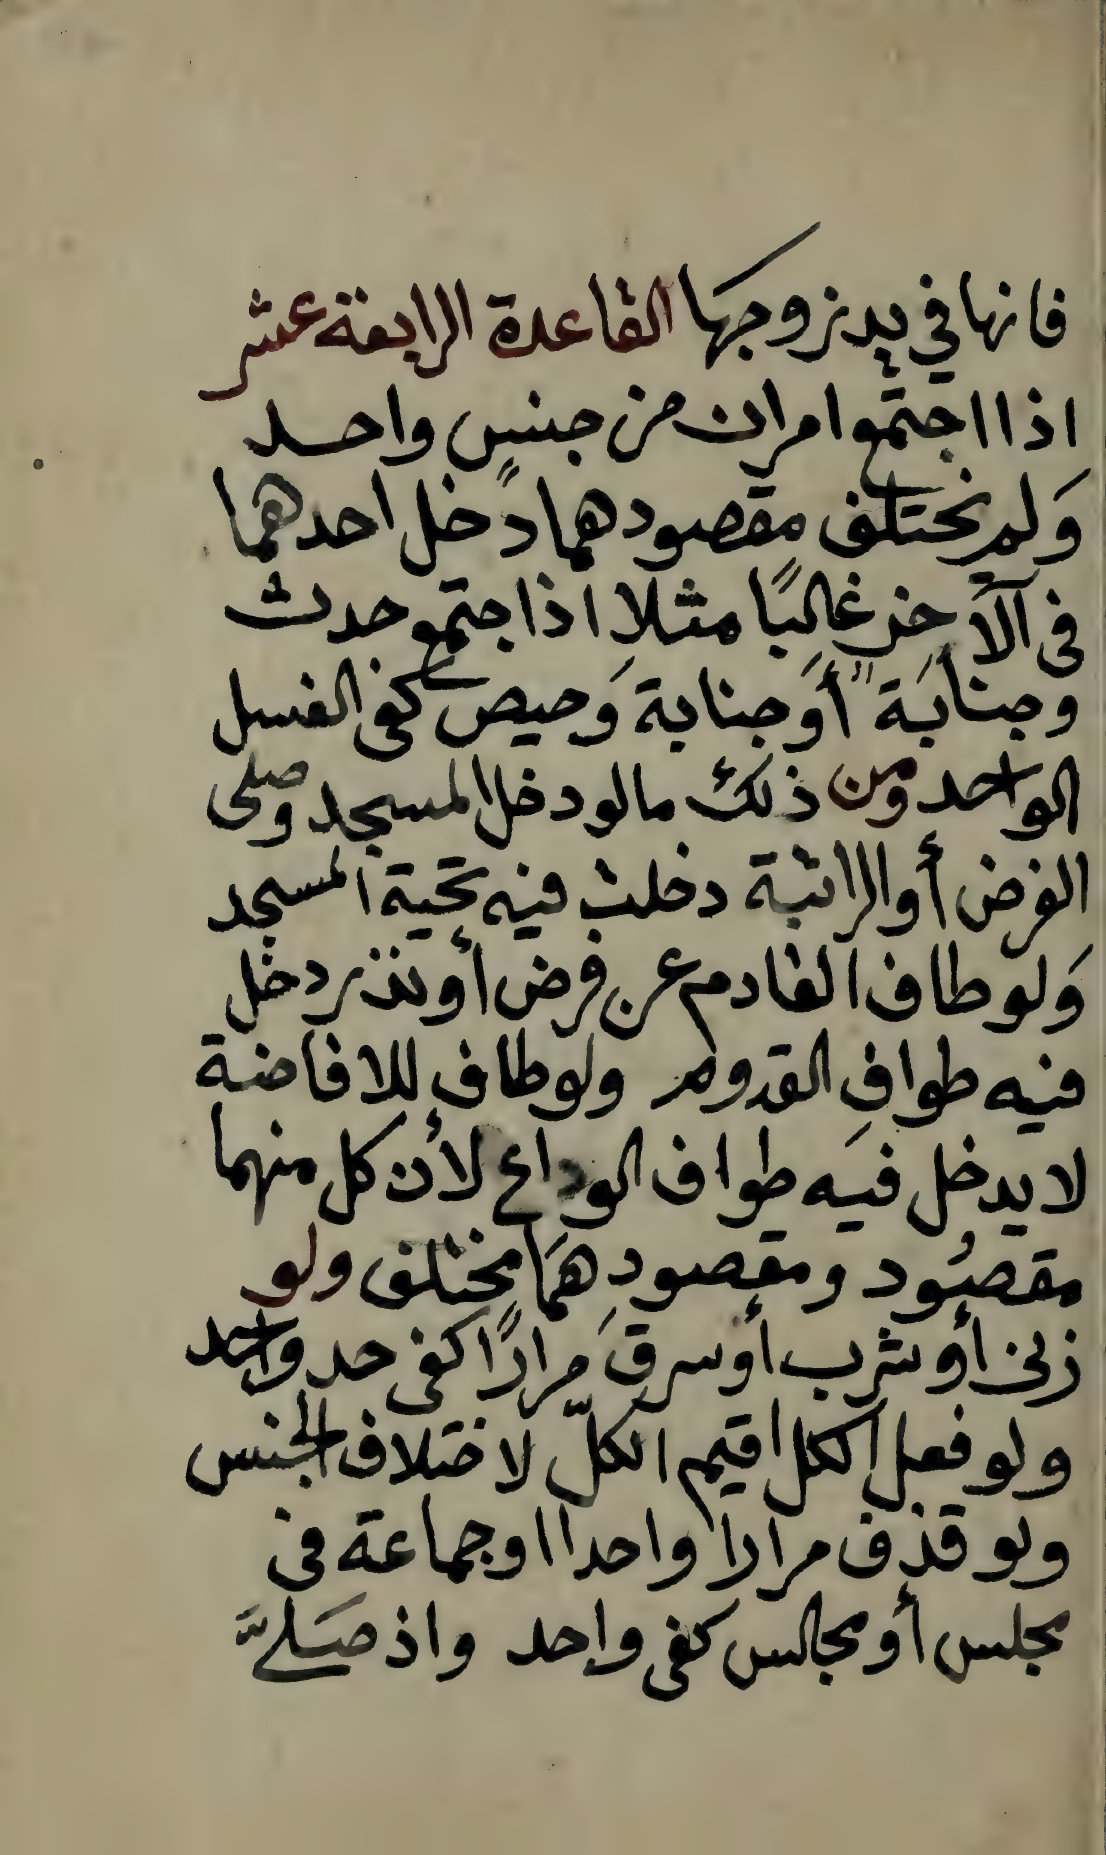 فانها في يد زوجها القاعدة الرابعة عشر
اذا اجتمع امران من جنس واحد
ولم يختلف مقصودهما دخل احدهما
في الآخر غالبًا مثلا اذا اجتمع حدث
وجنابة أو جنابة وحيض كفى الغسل
الواحد ومن ذلك ما لو دخل المسجد وصلى
الفرض أو الراتبة دخلت فيه تحية المسجد
ولو طاف القادم عن فرض أو نذر دخل
فيه طواف القدوم ولو طاف للافاضة
لا يدخل فيه طواف الوداع لأن كل منهما
مقصُود ومقصودهما مختلف ولو
زنى أو شرب أو سرق مرارًا كفى حد واحد
ولو فعل الكل اقيم الكلّ لاختلاف الجنس
ولو قذف مرارا واحدا او جماعة في
مجلس أو مجالس كفى واحد واذ صَلَّ